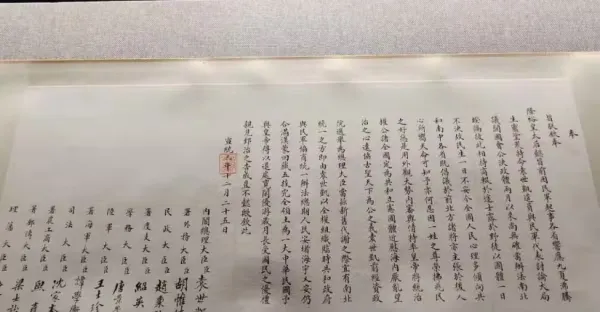 奉
旨朕欽奉
隆裕皇太后懿旨前因民軍起事各省響應九夏沸騰
生靈塗炭特命袁世凱遣員與民軍代表討論大局
議開國會公決政體兩月以來尚無確當辦法南北
暌隔彼此相持商輟於途士露於野徒以國體一日
不決故民生一日不安今全國人民心理多傾向共
和南中各省既倡議於前北方諸將亦主張於後人
心所嚮天命可知予亦何忍因一姓之尊榮拂兆民
之好惡是用外觀大勢內審輿情特率皇帝將統治
權公諸全國定為共和立憲國體近慰海內厭亂望
治之心遠協古聖天下為公之義袁世凱前經資政
院選舉為總理大臣當茲新舊代謝之際宜有南北
統一之方即由袁世凱以全權組織臨時共和政府
與民軍協商統一辦法總期人民安堵海宇乂安仍
合滿漢蒙回藏五族完全領土為一大中華民國予
與皇帝得以退處寬閒優游歲月長受國民之優禮
親見郅治之告成豈不懿歟欽此
宣統三年十二月二十五日
內閣總理大臣臣袁世
署外務大臣臣胡惟
民政大臣臣趙秉
署度支大臣臣紹英
學務大臣臣唐景
陸軍大臣臣王士珍
署海軍大臣臣譚學
司法大臣臣沈家本
署農工商大臣臣熙
署郵傳大臣臣梁士
理藩大臣臣